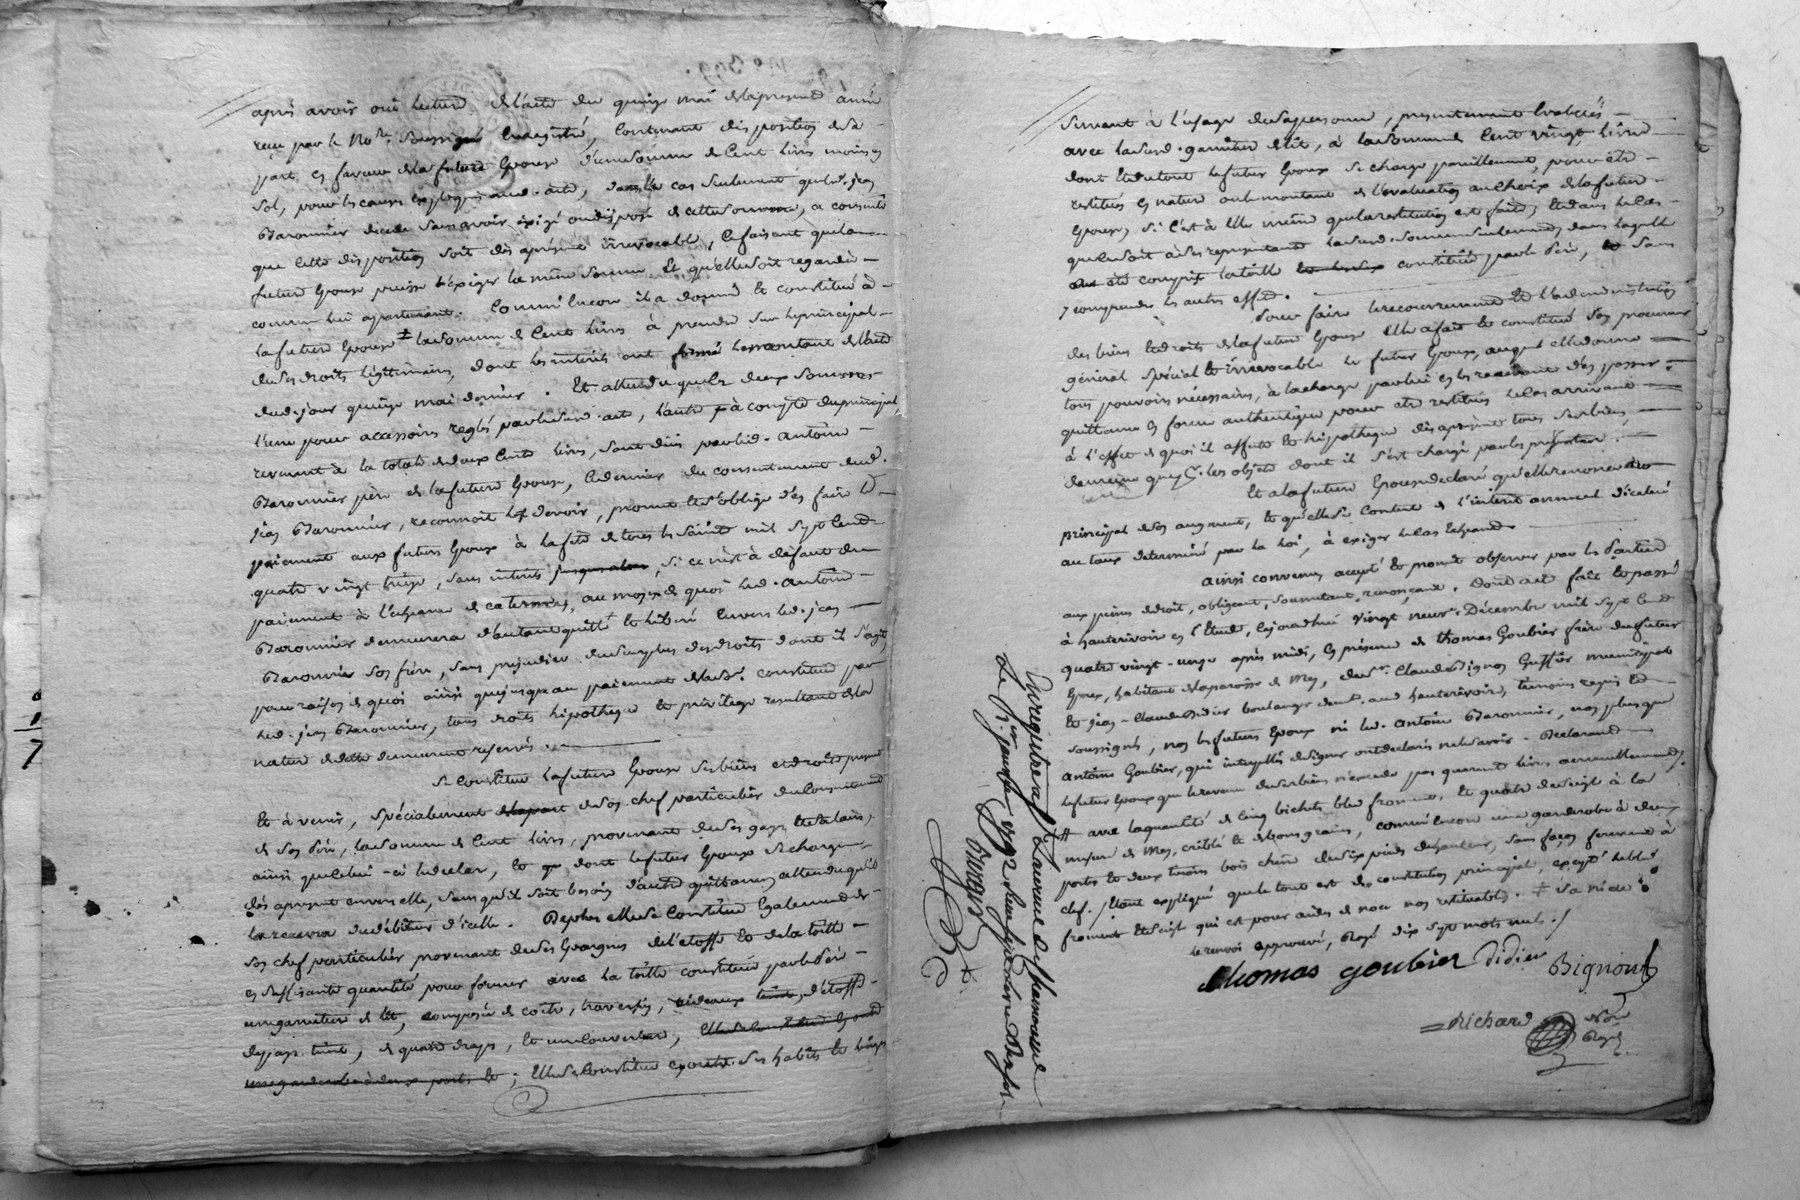 après avoir ouï lecture de l'acte du quinze mai de la présente année
reçu par le No.re soussigné enregistré, contenant disposition de sa
part en faveur de la future Epouse d'une somme de cent livres moins un
sol, pour les causes expliquées aud. acte, dans le cas seulement que led. jean
Baronnier décède sans avoir exigé ou disposé de cette somme, a consenti
que cette disposition soit dès aprésent irrévocable, ce faisant que la
future Epouse puisse exiger la même somme et qu'elle soit regardée
comme lui appartenant. Comme encore il a donné et constitué à
la future Epouse la somme de cent livres à prendre sur le principal
de ses droits légitimaires, dont les intérêts ont formé le montant de l'acte
dud. jour quinze mai dernier. Et attendu que les deux sommes
l'une pour accessoires reglés par le susd. acte, l'autre à compte du principal
revenant à la totale de deux cents livres, sont dües par led. antoine
Baronnier père de la future Epouse, ce dernier du consentement dud.
jean Baronnier, reconnoit les devoir, promet et s'oblige d'en faire le
paiement aux futurs Epoux à la fete de tous les Saints mil sept cent
quatre vingt treize, sans intérêts jusqu'alors, si ce n'est à défaut du
paiement à l'echeance de ce terme, au moyen de quoi led. antoine
Baronnier demeurera d'autant quitte et libéré envers led. jean
Baronnier son frère, sans préjudice du surplus des droits dont il s'agit
pour raison de quoi ainsi que jusqu'au paiement de la so.e constituée par
led. jean Baronnier, tous droits hipotheque et privilège resultant de la
nature de dette demeurent reservés.
Se constitue la future Epouse ses biens et droits présents
et à venir, spécialement de son chef particulier du consentement
de son père, la somme de cent livres, provenant de ses gages et salaires,
ainsi que celui-ci le déclare, et dont le futur Epoux se charge
dès aprésent envers elle, sans qu'il soit besoin d'autre quittance, attendu qu'il
la recevra du débiteur d'icelle. De plus elle se constitue également de
son chef particulier provenant de ses Epargnes de l'étoffe et de la toille
en suffisante quantité pour former avec la toille constituée par led. père
une garniture de lit, composée de coitre, traversin, rideaux d'étoffe
de pays teint, de quatre draps, et une couverture,
une garderobe à deux portes et; elle se constitue ses habits et linges
servant à l'usage de sa personne, présentement évalués
avec la susd. garniture de lit, à la somme de cent vingt livres
dont et du tout le futur Epoux se charge pareillement, pour être
restitués en nature ou le montant de l'évaluation au choix de la future
Epouse, si c'est à elle même que la restitution est faite, et dans le cas
que ce soit à ses representants la susd. somme seulement, dans laquelle
a été comprise la toille constituée par le père, sans
y comprendre les autres effets.
Pour faire le recouvrement et l'administration
des biens et droits de la future Epouse elle a fait et constitué son procureur
général spécial et irrévocable le futur Epoux, auquel elle donne
tous pouvoirs nécessaires, à la charge par lui en les recevant d'en passer
quittance en forme authentique pour etre restitués le cas arrivant
à l'effet de quoi il affecte et hipotheque dès aprésent tous ses biens
de même que les objets dont il s'est chargé par les présentes.
Et a la future Epouse declaré qu'elle renonce au
principal de son augment, et qu'elle se contente de l'intérêt annuel d'icelui
au taux déterminé par la loi, à exiger le cas echeant.
Ainsi convenu accepté et promis observer par les parties
aux peines de droit, obligeant, soumettant, renonçant. Dont acte fait et passé
à hauterivoire en l'Etude, cejourd'hui vingt neuf Décembre mil sept cent
quatre vingt-onze après midi, en présence de thomas Goubier frère du futur
Epoux, habitant de la paroisse de Mey, de s.r Claude Bignon Greffier municipal
et jean-Claude Didier boulanger demt. aud hauterivoire, témoins requis et
soussignés, non les futurs Epoux ni led. antoine Baronnier, non plus que
Antoine Goubier, qui interpellés de signer ont déclaré ne le savoir. Declarant
le futur Epoux que le revenu de ses biens n'excede pas quarente livres annuellement.
# avec la quantité de cinq bichets bled froment, et quatre de seigle à la
mesure de Mey, criblé et de bons grains, comme encore une garderobe à deux
portes et deux tiroirs bois chêne de six pieds de hauteur, sans façon fermant à
clef. / étant expliqué que le tout est de constitution principale, excepté le bled
froment et seigle qui est pour aides de noce non restituables.
le renvoi approuvé, Rayé dix sept mots nuls. /
thomas goubier Didier Bignon
Richard No.re
Royal
Enregistré à St Laurent de Chamousset
Le 1792